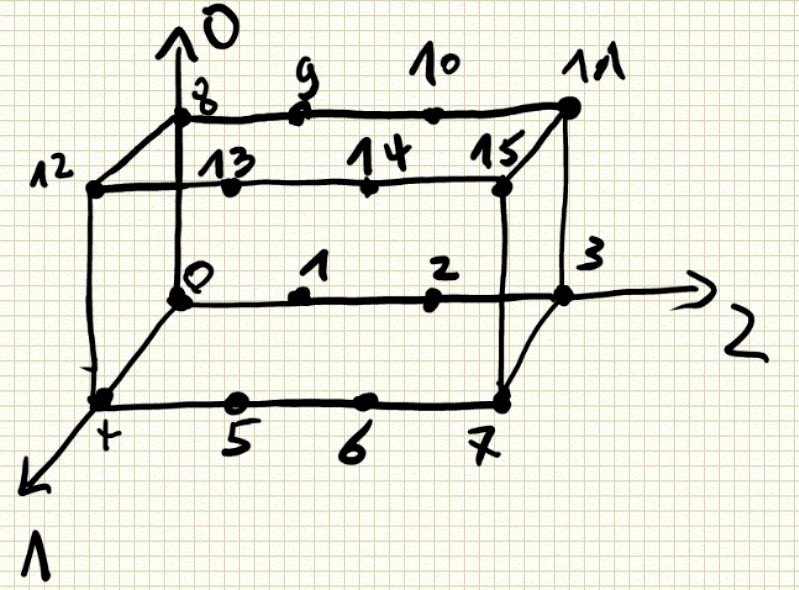 0
8 9 10 11
12 13 14 15
0 1 2 3
2
4 5 6 7
1